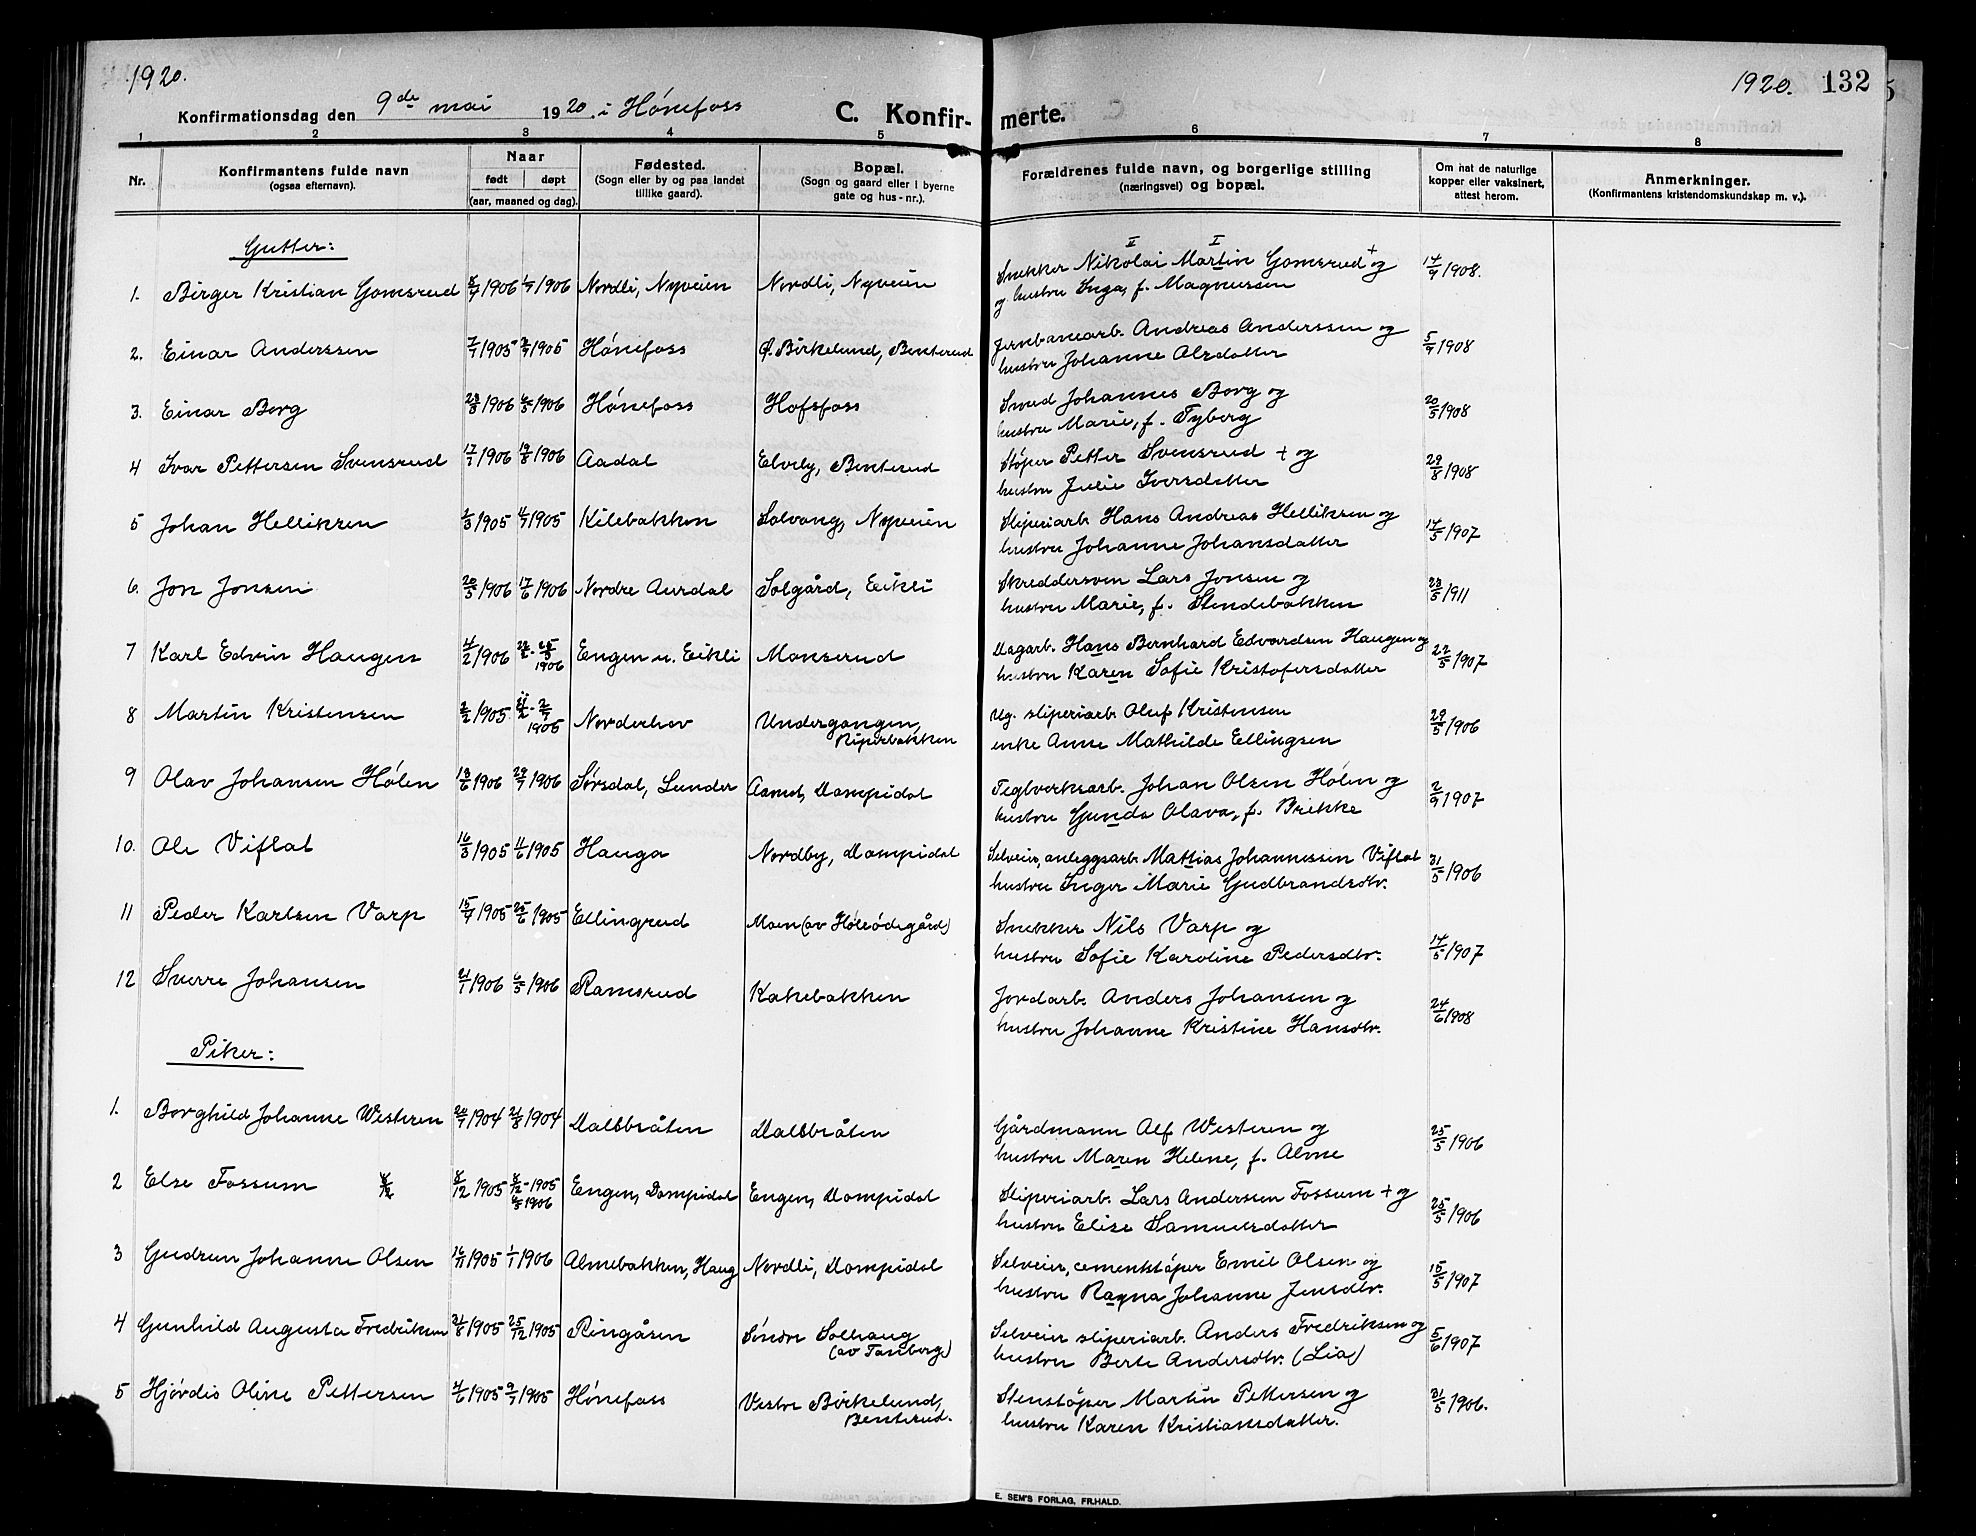 1920.
1920. 132
Konfirmationsdag den 9de mai 1920. i Hónefoss
C. Konfirmerte.
1 2 3 4 5 6 7 8
Nr.
Konfirmantens fulde navn
(ogsaa efternavn).
Naar
født døpt
(aar, maaned og dag).
Fødested.
(Sogn eller by og paa landet
tillike gaard).
Bopæl.
(Sogn og gaard eller i byerne
gate og hus-nr.).
Forældrenes fulde navn, og borgerlige stilling
(næringsvei) og bopæl.
Om hat de naturlige
kopper eller vaksinert,
attest herom.
Anmerkninger.
(Konfirmantens kristendomskundskap m. v.).
Gutter:
1. Birger Kristian Gomsrud 1906 1906 Nordli, Nyveien Nordli, Nyveien
Snekker Nikolai Martin Gomsrud + og
og hustru Inga, f. Magnussen 14/9 1908.
2. Einar Anderssen 1905 1905 Hónefoss Ø. Birkelund, Benterud
Jernbanearb. Andreas Anderssen og
hustru Johanne Olsdatter 5/9 1908
3. Einar Borg 1906 1906 Hónefoss Hofsfoss
Smed Johannes Borg og
hustru Marie, f. Tyberg 20/5 1908
4 Ivar Pettersen Svensrud 17/1 1906 19/8 1906 Aadal Elvely, Benterud
Støper Petter Svensrud + og
hustru Julie Iversdatter 29/8 1908
5 Johan Helliksen 1905 1905 Kilebakken Solvang, Nyveien
Sliperiarb. Hans Andreas Helliksen og
hustru Johanne Johansdatter 14/5 1907
6. Jon Jonsen 20/5 1906 17/6 1906 Nordre Aurdal Solgård, Eikli
Skreddersven Lars Jonsen og
hustru Marie, f. Stendebakken 23/5 1911
7 Karl Edvin Haugen 1906 1906 Engen u. Eikli Monserud
Dagarb. Hans Bernhard Edvardsen Haugen og
hustru Karen Sofie Kristofersdatter 22/5 1907
8 Martin Kristensen 2/2 1905 1905 Norderhov Undergangen,
Riperbakken
Ug. sliperiarb. Oluf Kristensen
enke Anne Mathilde Ellingsen 29/5 1906
9 Olav Johansen Hólen 13/6 1906 29/7 1906 Sørsdal, Lunder Aamot, Dompidal
Teglverksarb. Johan Olsen Hólen og
hustru Gunda Olava, f. Brekke 2/9 1907
10. Ole Viflat 16/3 1905 11/6 1905 Hauga Nordby, Dompidal
Selveier, anleggsarb. Mattias Johannessen Viflat
hustru Inger Marie Gudbrandsdtr. 31/5 1906
11 Peder Karlsen Varp 1905 25/6 1905 Ellingrud Moen (av Høleødegård)
Snekker Nils Varp og
hustru Sofie Karoline Pedersdtr. 14/5 1907
12 Sverre Johansen 1906 6/5 1906 Ramsrud Kakebakken
Jordarb. Anders Johansen og
hustru Johanne Kristine Hansdtr. 24/6 1908
Piker:
1. Borghild Johanne Westeren 20/7 1904 21/8 1904 Dalsbråten Dalsbråten
Gårdmann Alf Westeren og
hustru Maren Helene, f. Alme 25/5 1906
2 Else Fossum 8/12 1905 1905 1906 Engen, Dompidal Engen, Dompidal
Sliperiarb. Lars Andersen Fossum + og
hustru Elise Samuelsdatter 25/5 1906
3 Gudrun Johanne Olsen 16/11 1905 1/1 1906 Almebakken, Haug Nordli, Dompidal
Selveier, cementstøper Emil Olsen og
hustru Ragna Johanne Jensdtr. 15/5 1907
4 Gunhild Augusta Fredriksen 31/8 1905 25/12 1905 Ringåsen Sóndre Solhaug
(av Tanberg)
Selveier sliperiarb. Anders Fredriksen og
hustru Berte Andersdtr. (Lia) 5/6 1907
5 Hjórdis Oline Pettersen 4/6 1905 9/7 1905 Hónefoss Vestre Birkelund,
Benterud.
Stenstøper Martin Pettersen og
hustru Karen Kristiansdatter. 31/5 1906.
E. SEM'S FORLAG, FR.HALD.